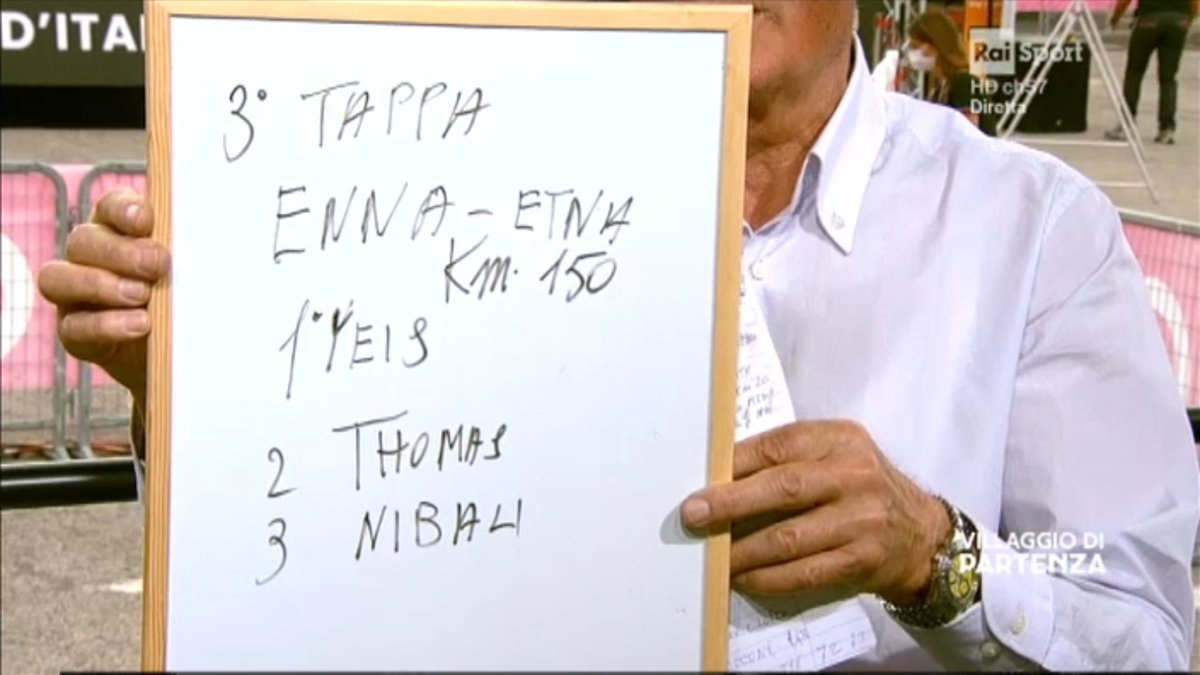 D'ITA
Rai Sport
HD ch57
Diretta
3° TAPPA
ENNA - ETNA
Km. 150
1° YEIS
2 THOMAS
3 NIBALI
VILLAGGIO DI
PARTENZA